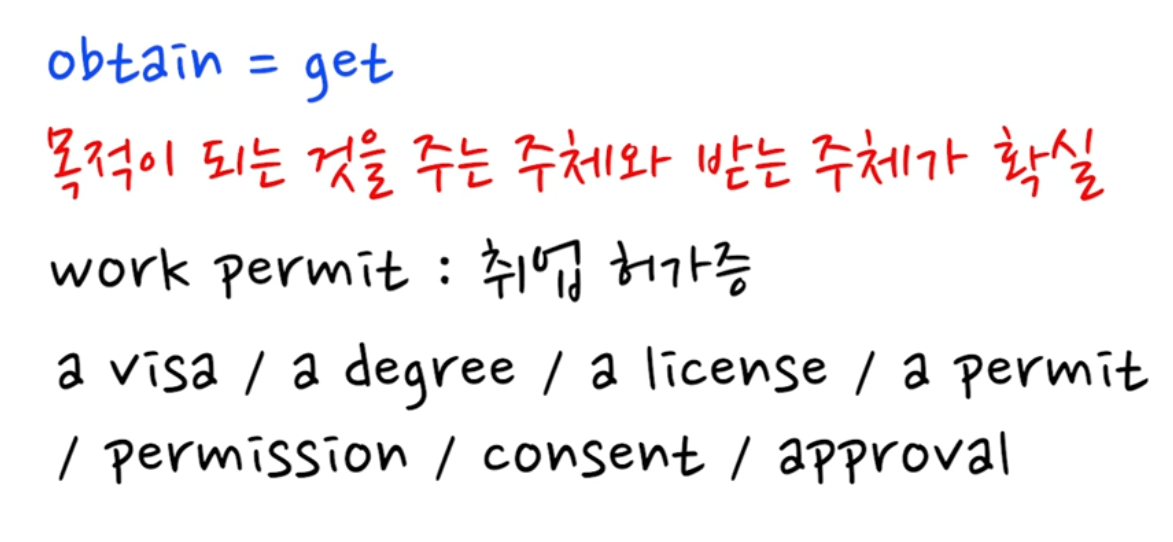 obtain = get
목적이 되는 것을 주는 주체와 받는 주체가 확실
work permit : 취업 허가증
a visa / a degree / a license / a permit
/ permission / consent / approval